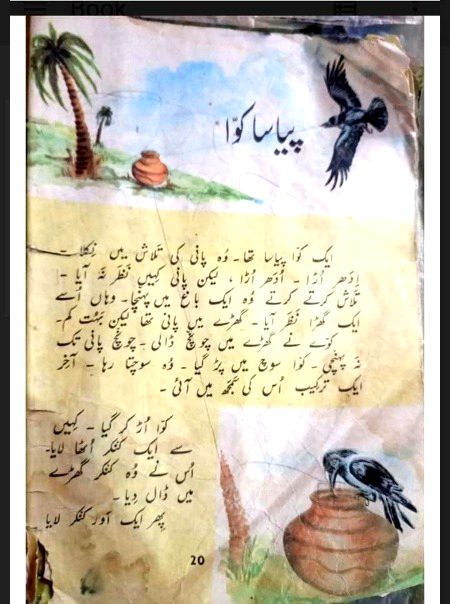 Book
پیاسا کوّا
ایک کوّا پیاسا تھا۔ وُہ پانی کی تلاش میں نِکلا۔
اِدھر اُڑا۔ اُدھر اُڑا، لیکن پانی کہیں نظر نہ آیا۔
تلاش کرتے کرتے وُہ ایک باغ میں پہنچا۔ وہاں اُسے
ایک گھڑا نظر آیا۔ گھڑے میں پانی تھا لیکن بہُت کم۔
کوّے نے گھڑے میں چونچ ڈالی۔ چونچ پانی تک
نہ پہنچی۔ کوّا سوچ میں پڑ گیا۔ وُہ سوچتا رہا۔ آخر
ایک ترکیب اُس کی سمجھ میں آئی۔
کوّا اُڑ کر گیا۔ کہیں
سے ایک کنکر اُٹھا لایا۔
اُس نے وُہ کنکر گھڑے
میں ڈال دِیا۔
پھِر ایک اَور کنکر لایا
20